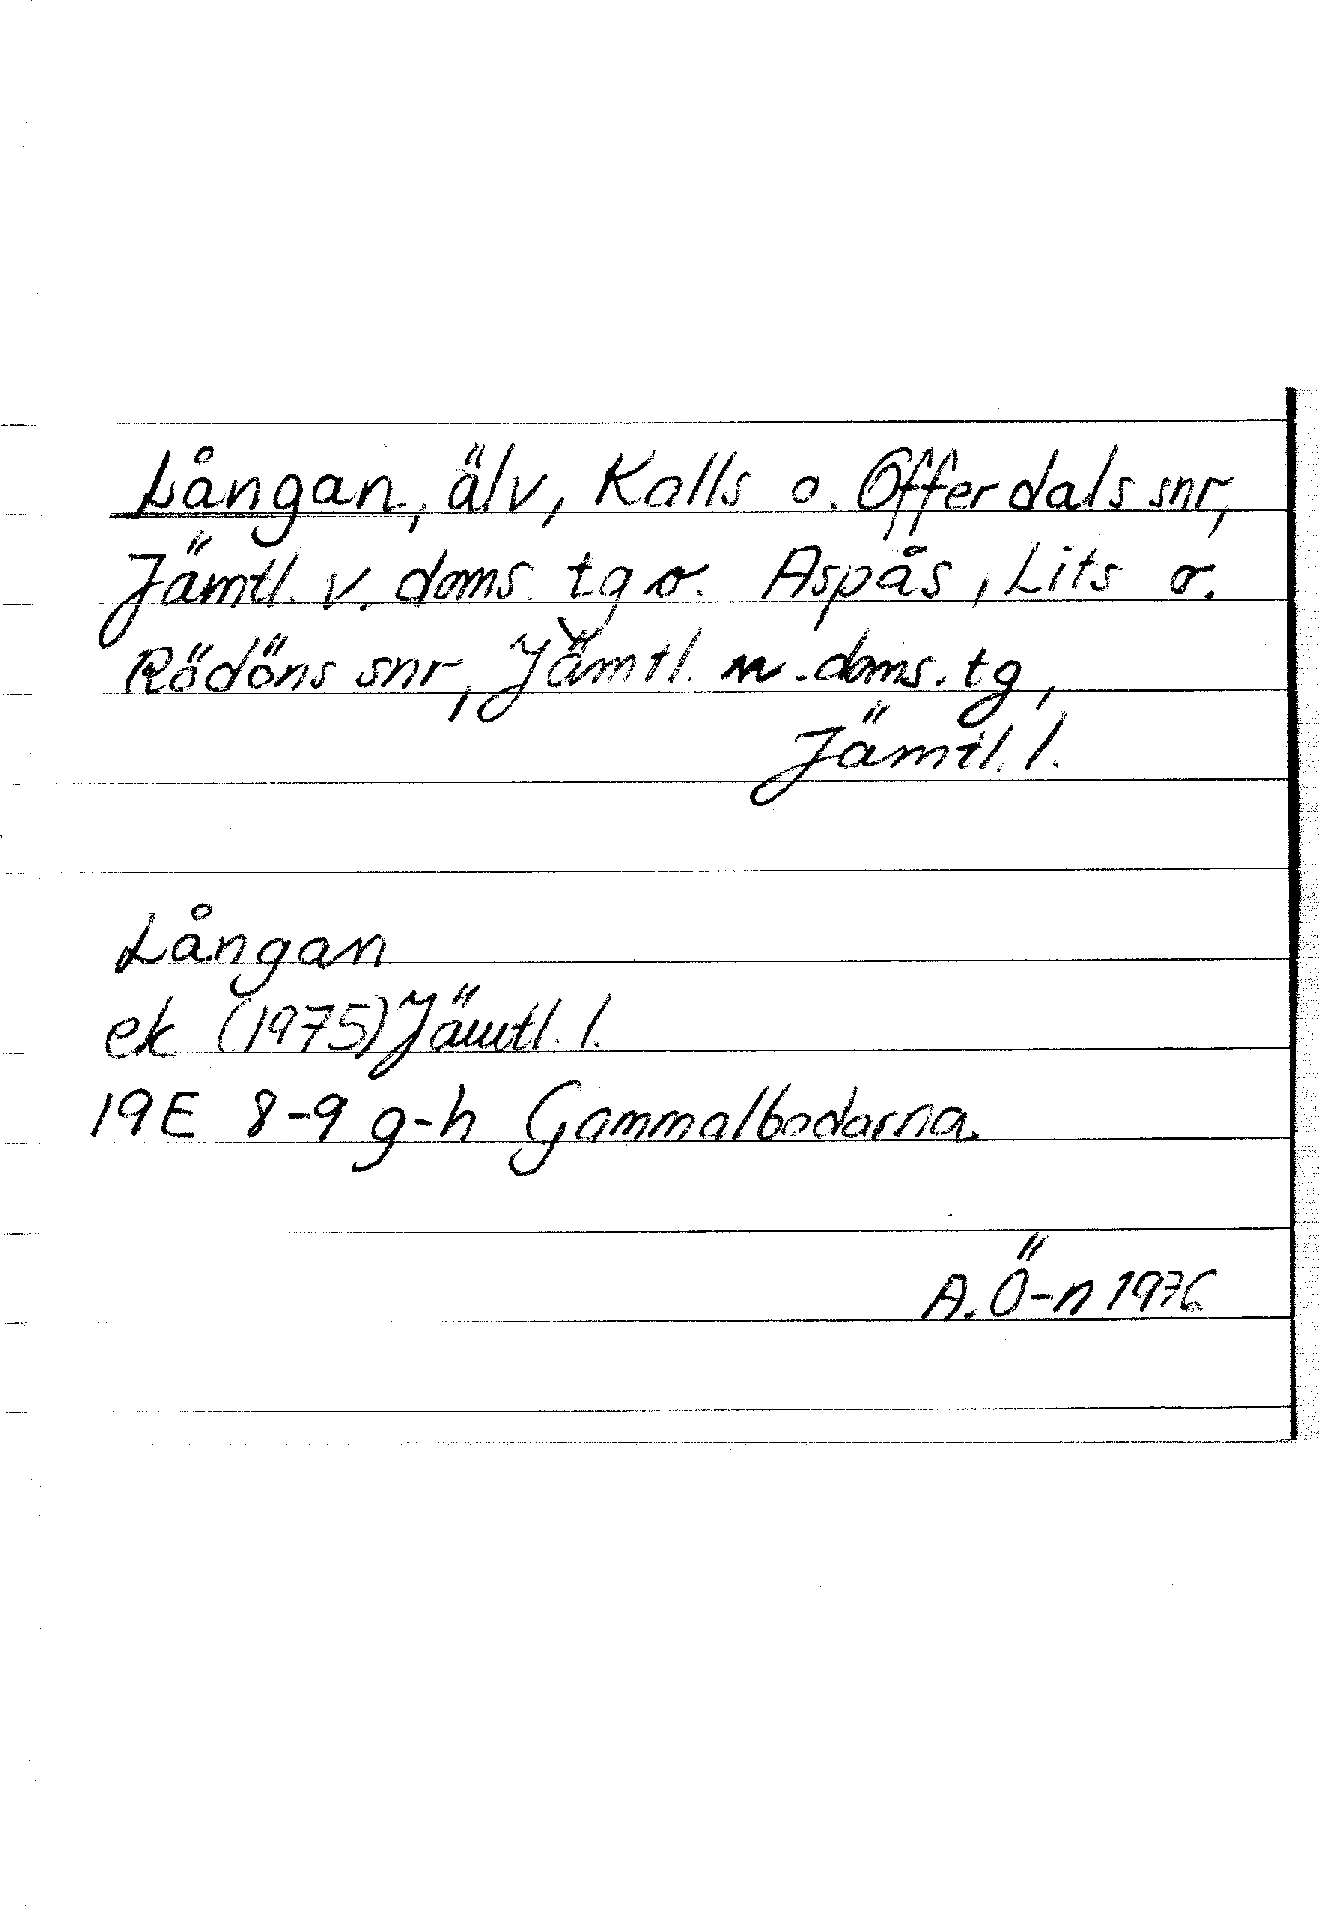 Långan, älv, Kalls o. Offerdals snr,
Jämtl. v. doms. tg o. Aspås, Lits o.
Rödöns snr, Jämtl. n. doms. tg,
Jämtl. l.
Långan
ek (1975) Jämtl. l.
19E 8-9 g-h Gammalbodarna.
A. Ö-n 1976